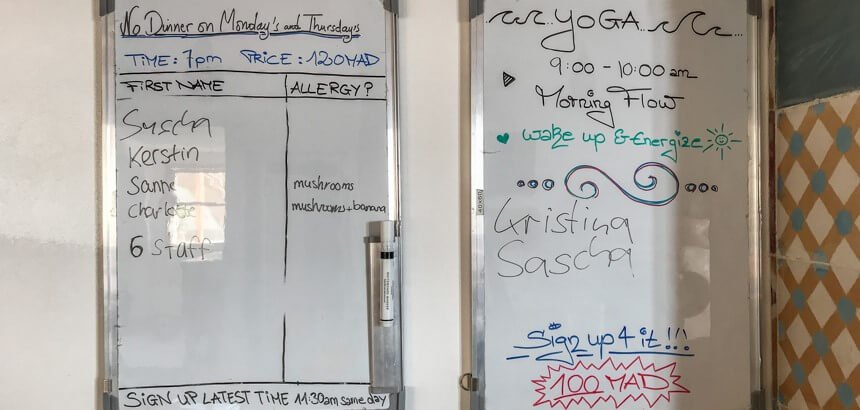 No Dinner on Monday's and Thursday's
TIME: 7pm PRICE: 120 MAD
FIRST NAME ALLERGY?
Sascha
Kerstin
Sanne mushrooms
Charlotte mushrooms + banana
6 Staff
SIGN UP LATEST TIME 11:30am same day
YOGA
9:00 - 10:00 am
Morning Flow
wake up & Energize
Kristina
Sascha
Sign up 4 it!!!
100 MAD